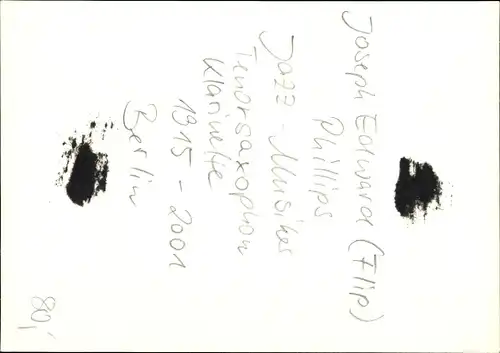 Joseph Edward (Flip)
Phillips
Jazz-Musiker
Tenorsaxophon
Klarinette
1915 - 2001
Berlin
80,-